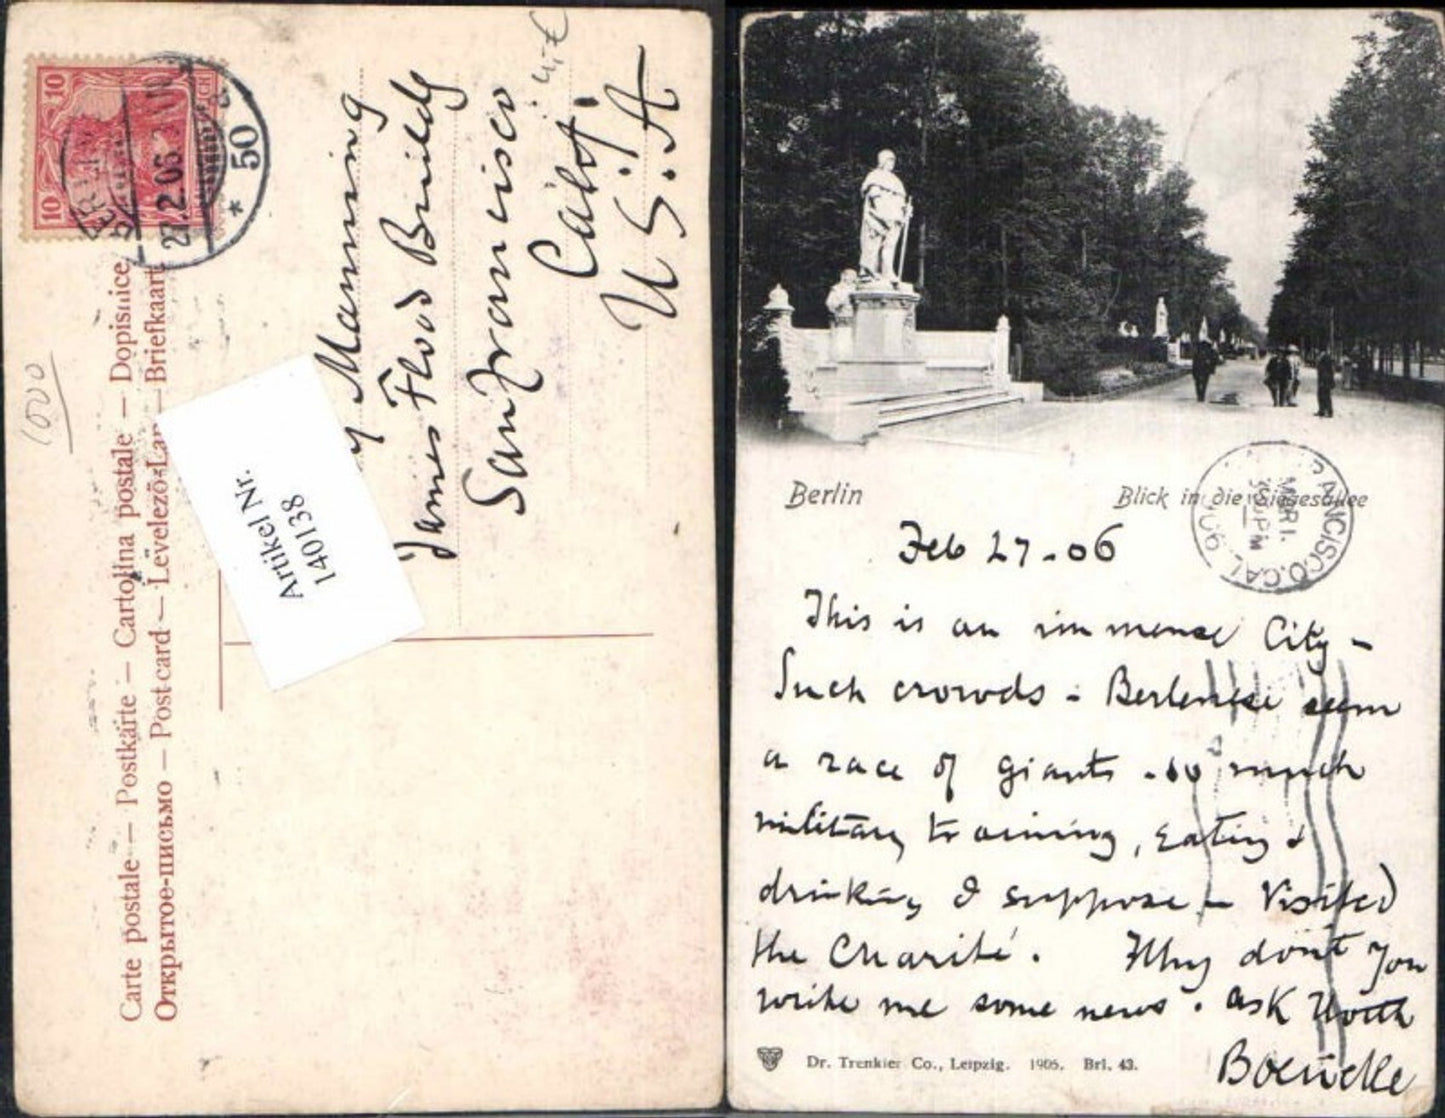 10 10
BERLIN
27.2.06.
* 50 a
1000
Carte postale — Postkarte — Cartolina postale — Dopisnice
Открытое-письмо — Post card — Levelező-Lap — Briefkaart
Artikel Nr.
140138
Manning
James Flood Buildg
San Francisco
Calif.
U.S.A
Berlin
Blick in die Siegesallee
FRANCISCO, CAL.
MAR
06
Feb 27-06
This is an immense City -
Such crowds - Berlenese seem
a race of giants - so much
military training, eating &
drinking I suppose - Visited
the Charité. Why don't you
write me some news. ask
Dr. Trenkler Co., Leipzig. 1905. Brl. 43.